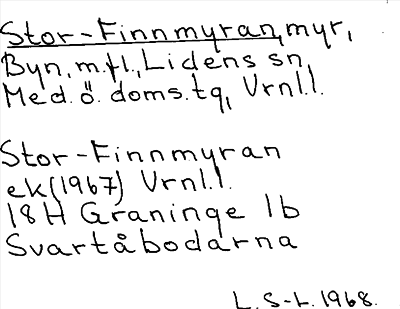 Stor-Finnmyran, myr,
Byn, m.fl., Lidens sn,
Med. ö. doms.tg, Vrnl.l.
Stor-Finnmyran
ek(1967) Vrnl.l.
18H Graninge 1b
Svartåbodarna
L. S-L. 1968.